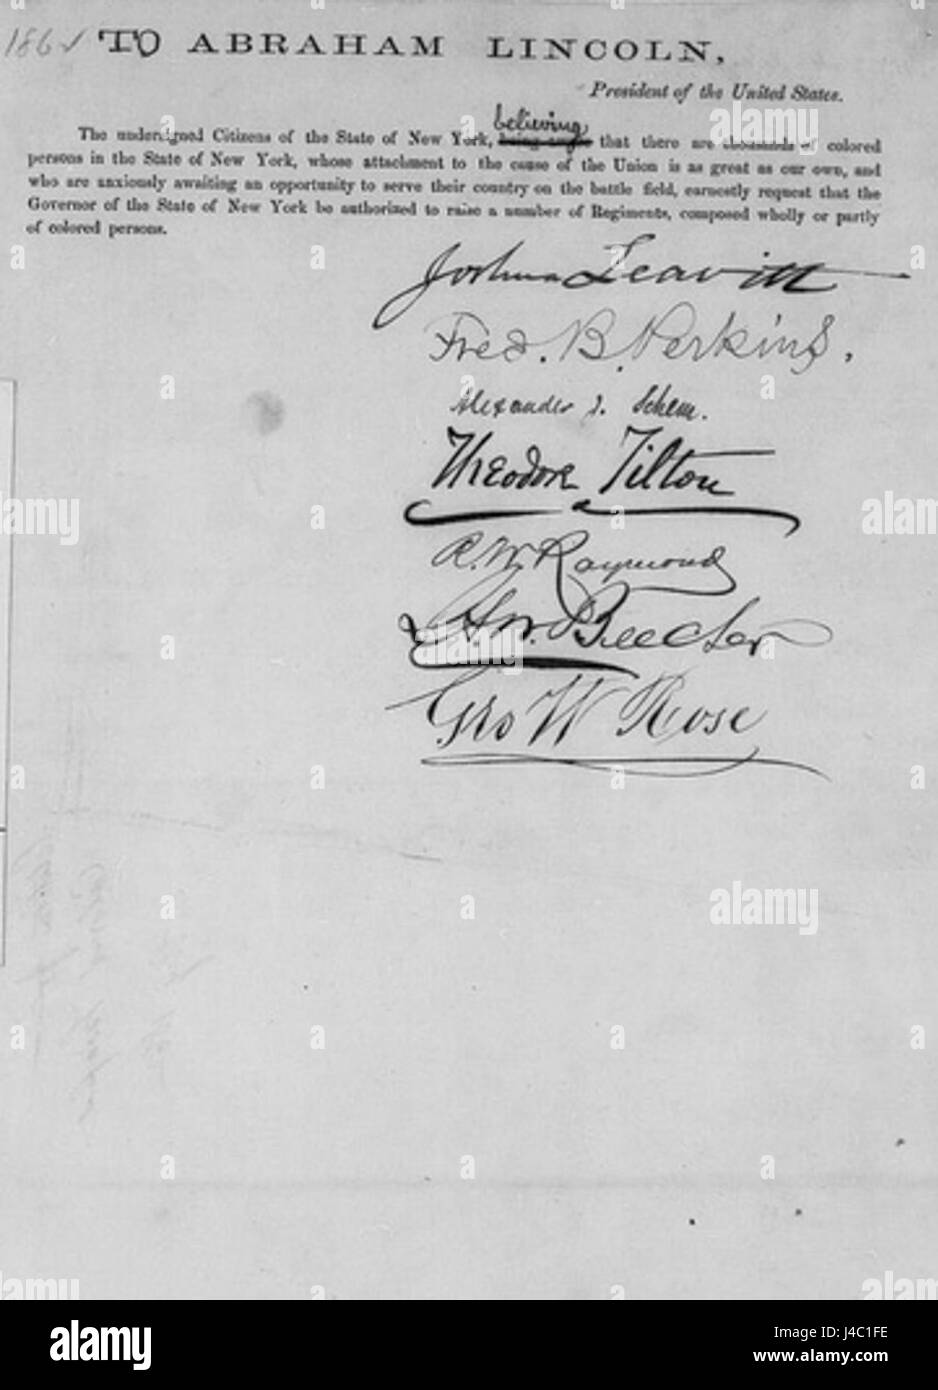 TO ABRAHAM LINCOLN,
President of the United States.
believing
The undersigned Citizens of the State of New York, that there are thousands of colored
persons in the State of New York, whose attachment to the cause of the Union is as great as our own, and
who are anxiously awaiting an opportunity to serve their country on the battle field, earnestly request that the
Governor of the State of New York be authorized to raise a number of Regiments, composed wholly or partly
of colored persons.
Joshua Leavitt
Fred. B. Perkins.
Alexander J. Schem.
Theodore Tilton
R. W. Raymond
H. W. Beecher
Geo W Rose
alamy
alamy stock photo
Image ID: J4C1FE
www.alamy.com